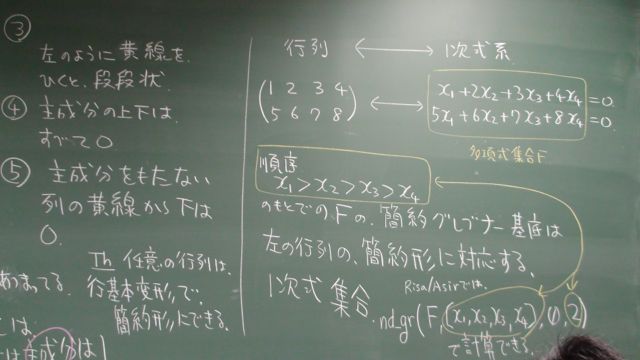 ③
左のように黄線を
ひくと、段段状.
④ 主成分の上下は
すべて0
⑤ 主成分をもたない
列の黄線から下は
0.
Th 任意の行列は、
行基本変形で、
簡約形にできる。
あつまってる.
とは、
は主成分は1
行列 ⟷ 1次式系
(1 2 3 4
5 6 7 8) ⟷
x₁+2x₂+3x₃+4x₄=0
5x₁+6x₂+7x₃+8x₄=0.
多項式集合F
順序
x₁>x₂>x₃>x₄
のもとでの、Fの、簡約グレブナー基底は
左の行列の、簡約形に対応する、
1次式集合.
Risa/Asirでは、
nd_gr(F,[x₁,x₂,x₃,x₄],0,2)
で計算できる。